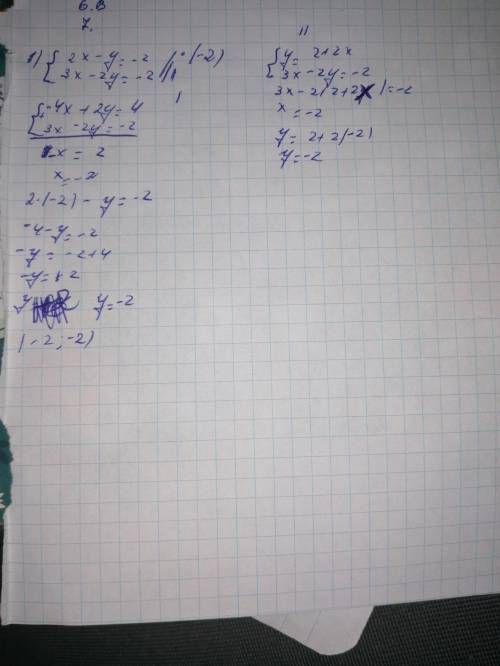 6.В
7.
1) { 2x - y = -2 // · (-2)
3x - 2y = -2
I
{ -4x + 2y = 4
3x - 2y = -2
-x = 2
x = -2
2·(-2) - y = -2
-4 - y = -2
-y = -2+4
-y = 2
y y = -2
(-2; -2)
II
{ y = 2+2x
3x - 2y = -2
3x - 2(2+2x) = -2
x = -2
y = 2+2(-2)
y = -2